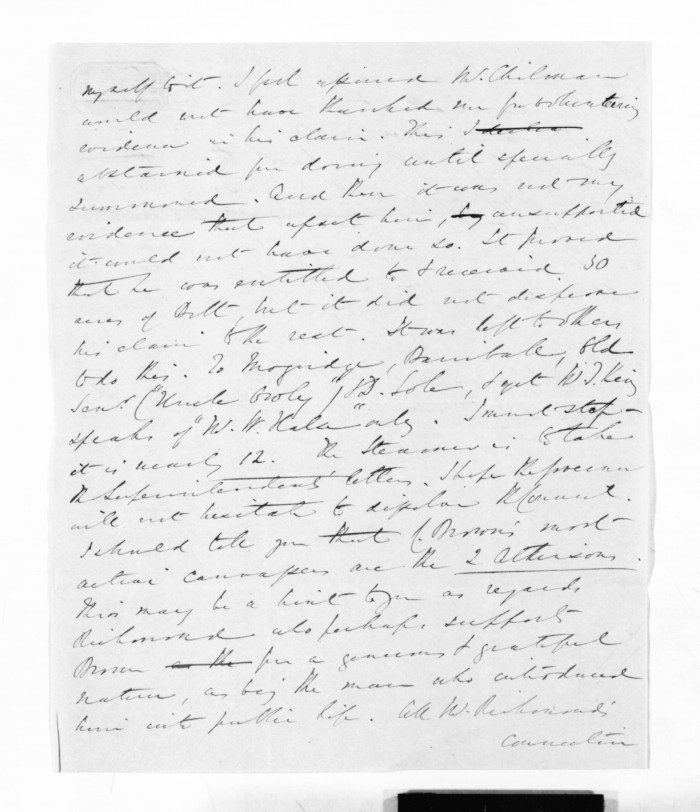 myself to it. I feel assured Mr. Chilman
would not have thanked me for volunteering
evidence in his claim. This I
abstained from doing until specially
summoned. And then it was not my
evidence that upset him, by unsupported
it could not have done so. It proved
that he was entitled to & received 30
acres of Bell, but it did not disprove
his claim to the rest. It was left to others
to do this. To Mogridge, Hannibal, old
("Uncle Croly") B. Sole, & yet W. J. King
speaks of "W. W. Hala" only. I must stop –
it is nearly 12. The Steamer is to take
the Superintendents' letters. I hope the
will not hesitate to dissolve the Council.
I should tell you that C. Brown's most
active canvassers are the 2 Atkinsons.
This may be a hint to you as regards
Richmond who perhaps supports
Brown as the for a generous & grateful
nature, as being the man who introduced
him into public life. All Mr. Richmond's
connection